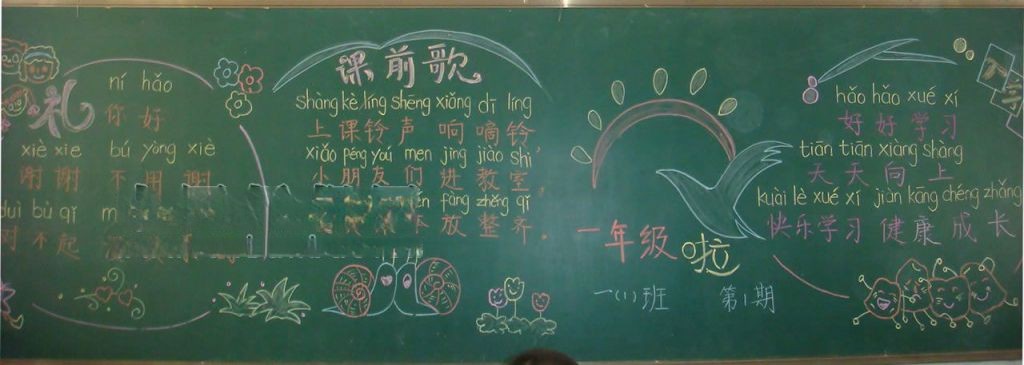 礼
ní hǎo
你好
xiè xie bú yòng xiè
谢谢 不用谢
duì bù qǐ
对不起
课前歌
shàng kè líng shēng xiǎng dī líng
上课铃声响嘀铃，
xiǎo péng yoú men jìng jiào shì
小朋友们进教室，
fàng zhěng qí
放整齐。
一年级啦
一(1)班 第1期
hǎo hǎo xué xí
好好学习
tiān tiān xiàng shàng
天天向上
kuài lè xué xí jiàn kāng chéng zhǎng
快乐学习 健康成长